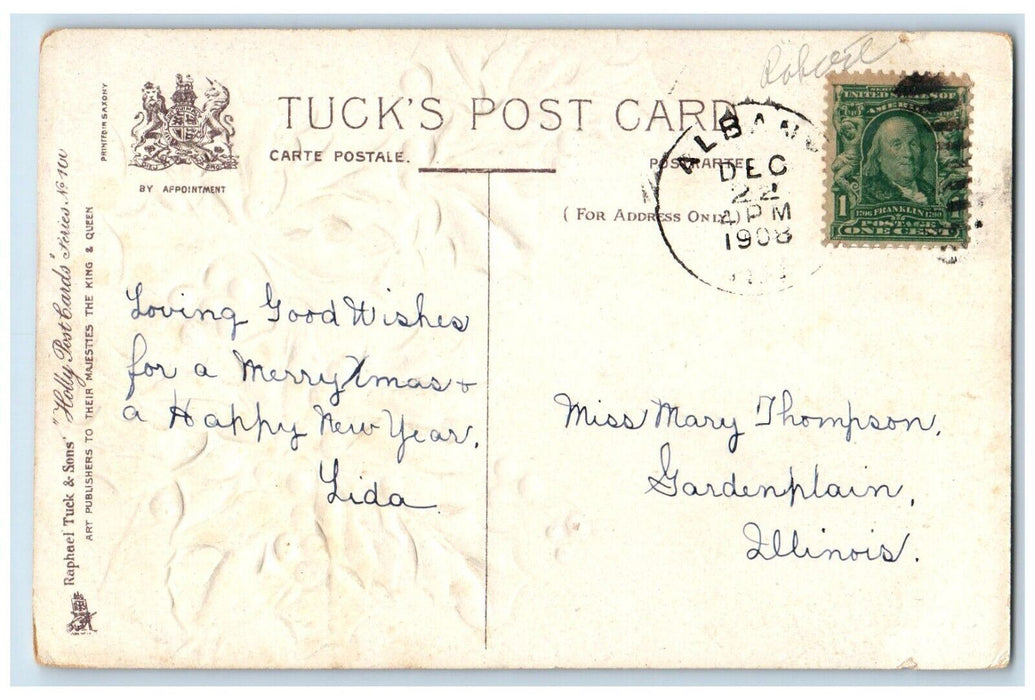 Robert
TUCK'S POST CARD
CARTE POSTALE.
POSTKARTE
(For Address Only)
BY APPOINTMENT
PRINTED IN SAXONY
Raphael Tuck & Sons' "Holly Post Cards" Series No 100
ART PUBLISHERS TO THEIR MAJESTIES THE KING & QUEEN
ALBANY
DEC
22
PM
1908
UNITED STATES OF
AMERICA
1 1
1706 FRANKLIN 1790
POSTAGE
ONE CENT
Loving Good Wishes
for a Merry Xmas +
a Happy New Year.
Lida
Miss Mary Thompson,
Gardenplain,
Illinois.